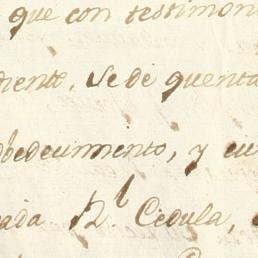 que con testimon
diente, se dé quenta
obedecimiento, y cu
ada Rl. Cedula,